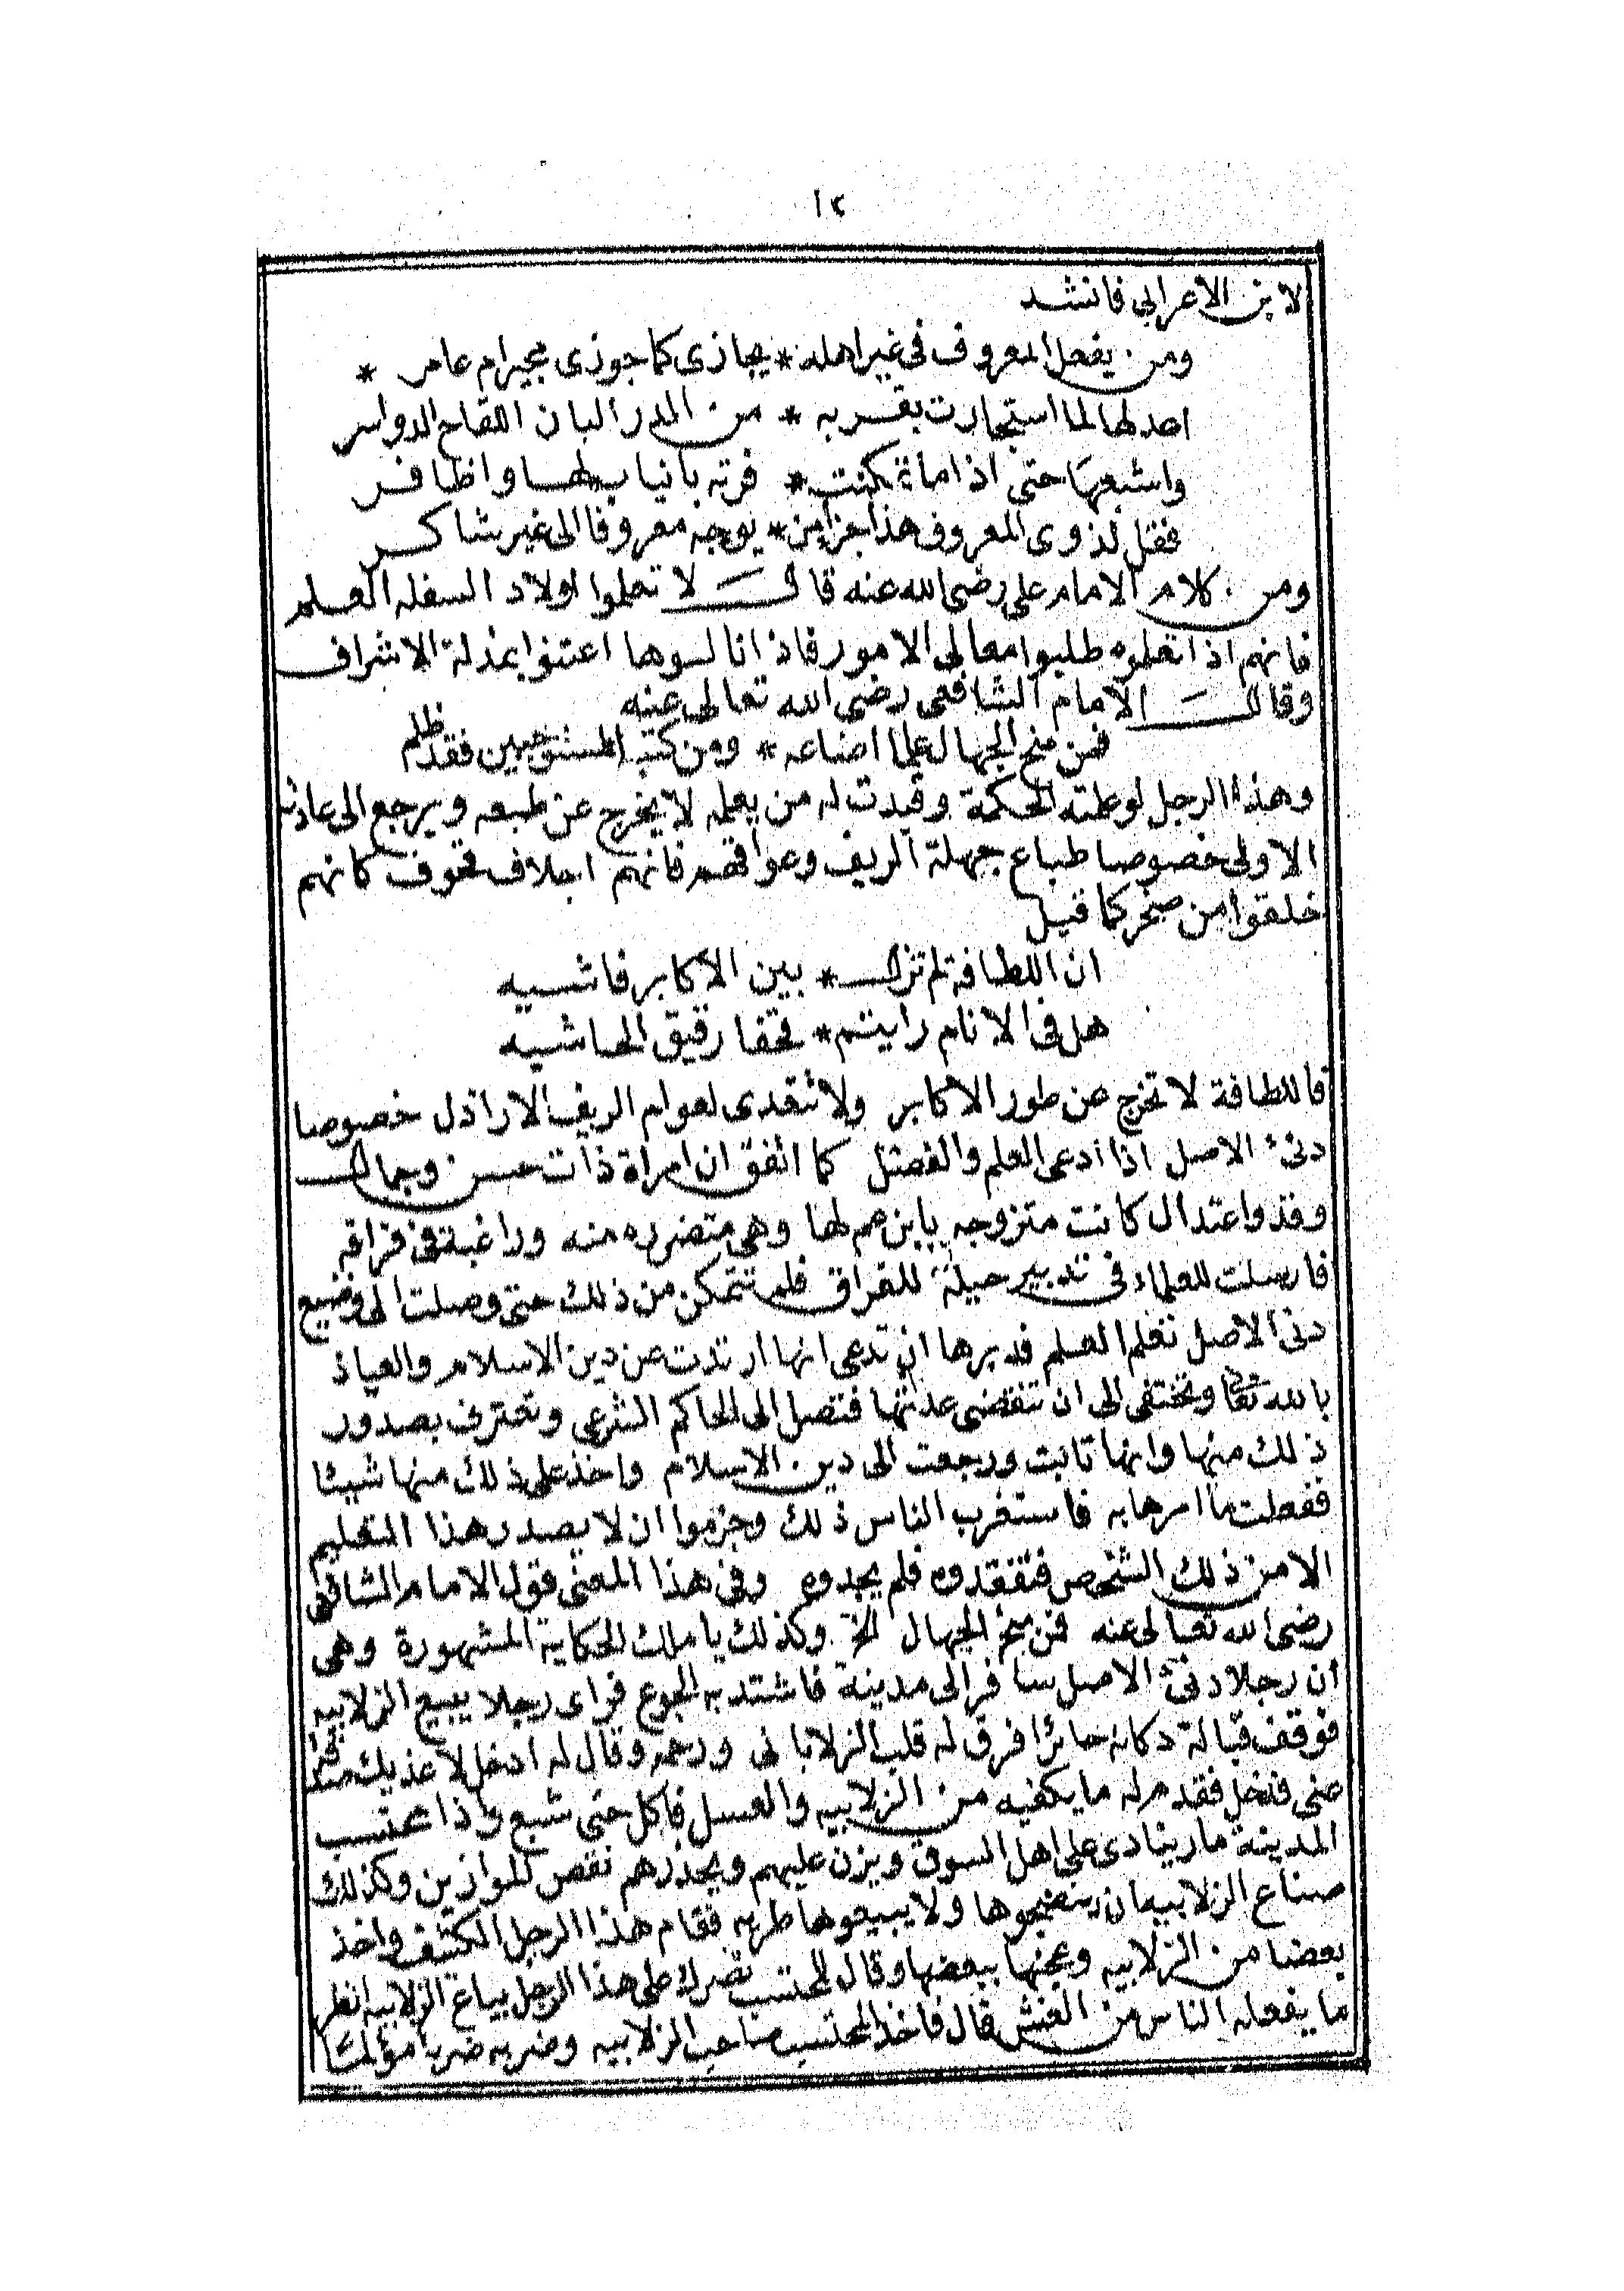 ١٢
لابن الأعرابي فانشد
ومن يفعل المعروف في غير اهله * يجازى كما جوزى مجير ام عامر *
اعد لها لما استجارت بقربه * من الدر ألبان اللقاح الدواسر
واشبعها حتى اذا ما تمكنت * فرته بانياب لها واظافر
فقل لذوى المعروف هذا جزا من * يوجه معروفا الى غير شاكر
ومن كلام الامام على رضى الله عنه قال لا تعلموا اولاد السفله العلم
فانهم اذا تعلموه طلبوا معالى الامور فاذا نالوها اعتنوا بمذلة الاشراف
وقال الامام الشافعى رضى الله تعالى عنه
فمن منح الجهال علما اضاعه * ومن كتب المستوجبين فقد ظلم
وهذا الرجل لو علمته الحكمة وقيدت له من يعلمه لا يخرج عن طبعه ويرجع الى عادته
الاولى خصوصا طباع جهلة الريف وعوا فانهم اجلاف قحوف كانهم
خلقوا من صخر كما قيل
ان اللطافة لم تزل * بين الاكابر فاشيه
هل فى الانام رايتم * قحفا رقيق الحاشيه
فاللطافة لا تخرج عن طور الاكابر ولا تتعدى لعوام الريف الاراذل خصوصا
دنئ الاصل اذا أدعى العلم والفضل كما اتفق ان امراة ذات حسن وجمال
وقد واعتدال كانت متزوجه بابن عم لها وهى متضرره منه وراغبة فى فراقه
فارسلت للعلماء فى تدبير حيلة للفراق فلم تتمكن من ذلك حتى وصلت الى وضيع
دنئ الاصل تعلم العلم فدبرها ان تدعى انها ارتدت عن دين الاسلام والعياذ
بالله تعا وتختفى الى ان تنقضى عدتها فتصل الى الحاكم الشرعى وتعترف بصدور
ذلك منها وانها تابت ورجعت الى دين الاسلام واخذ على ذلك منها شيئا
ففعلت ما امرها به فاستغرب الناس ذلك وجزموا ان لا يصدر هذا التعليم
الا من ذلك الشخص فتفقدوه فلم يجدوه وفى هذا المعنى قول الامام الشافى
رضى الله تعالى عنه فمن منح الجهال الخ وكذلك يا ملك الحكاية المشهورة وهى
أن رجلا دنئ الاصل سافر الى مدينة فاشتد به الجوع فراى رجلا يبيع الزلابيه
فوقف قبالة دكانه حائرا فرق له قلب الزلابانى ورحمه وقال له ادخل لاغذيك
فدخل فقدم له ما يكفيه من الزلابيه والعسل فاكل حتى شبع واذا بمحتسب
المدينة مار ينادى على اهل السوق ويزن عليهم ويحذرهم نقص الموازين وكذلك
صناع الزلابيه ان ينضجوها ولا يبيعوها طريه فقام هذا الرجل واخذ
بعضا من الزلابيه وعجنها ببعضها وقال للمحتسب على هذا الرجل بياع الزلابيه انظر
ما يفعله الناس من الغش قال فاخذ المحتسب صاحب الزلابيه وضربه ضربا مؤلما